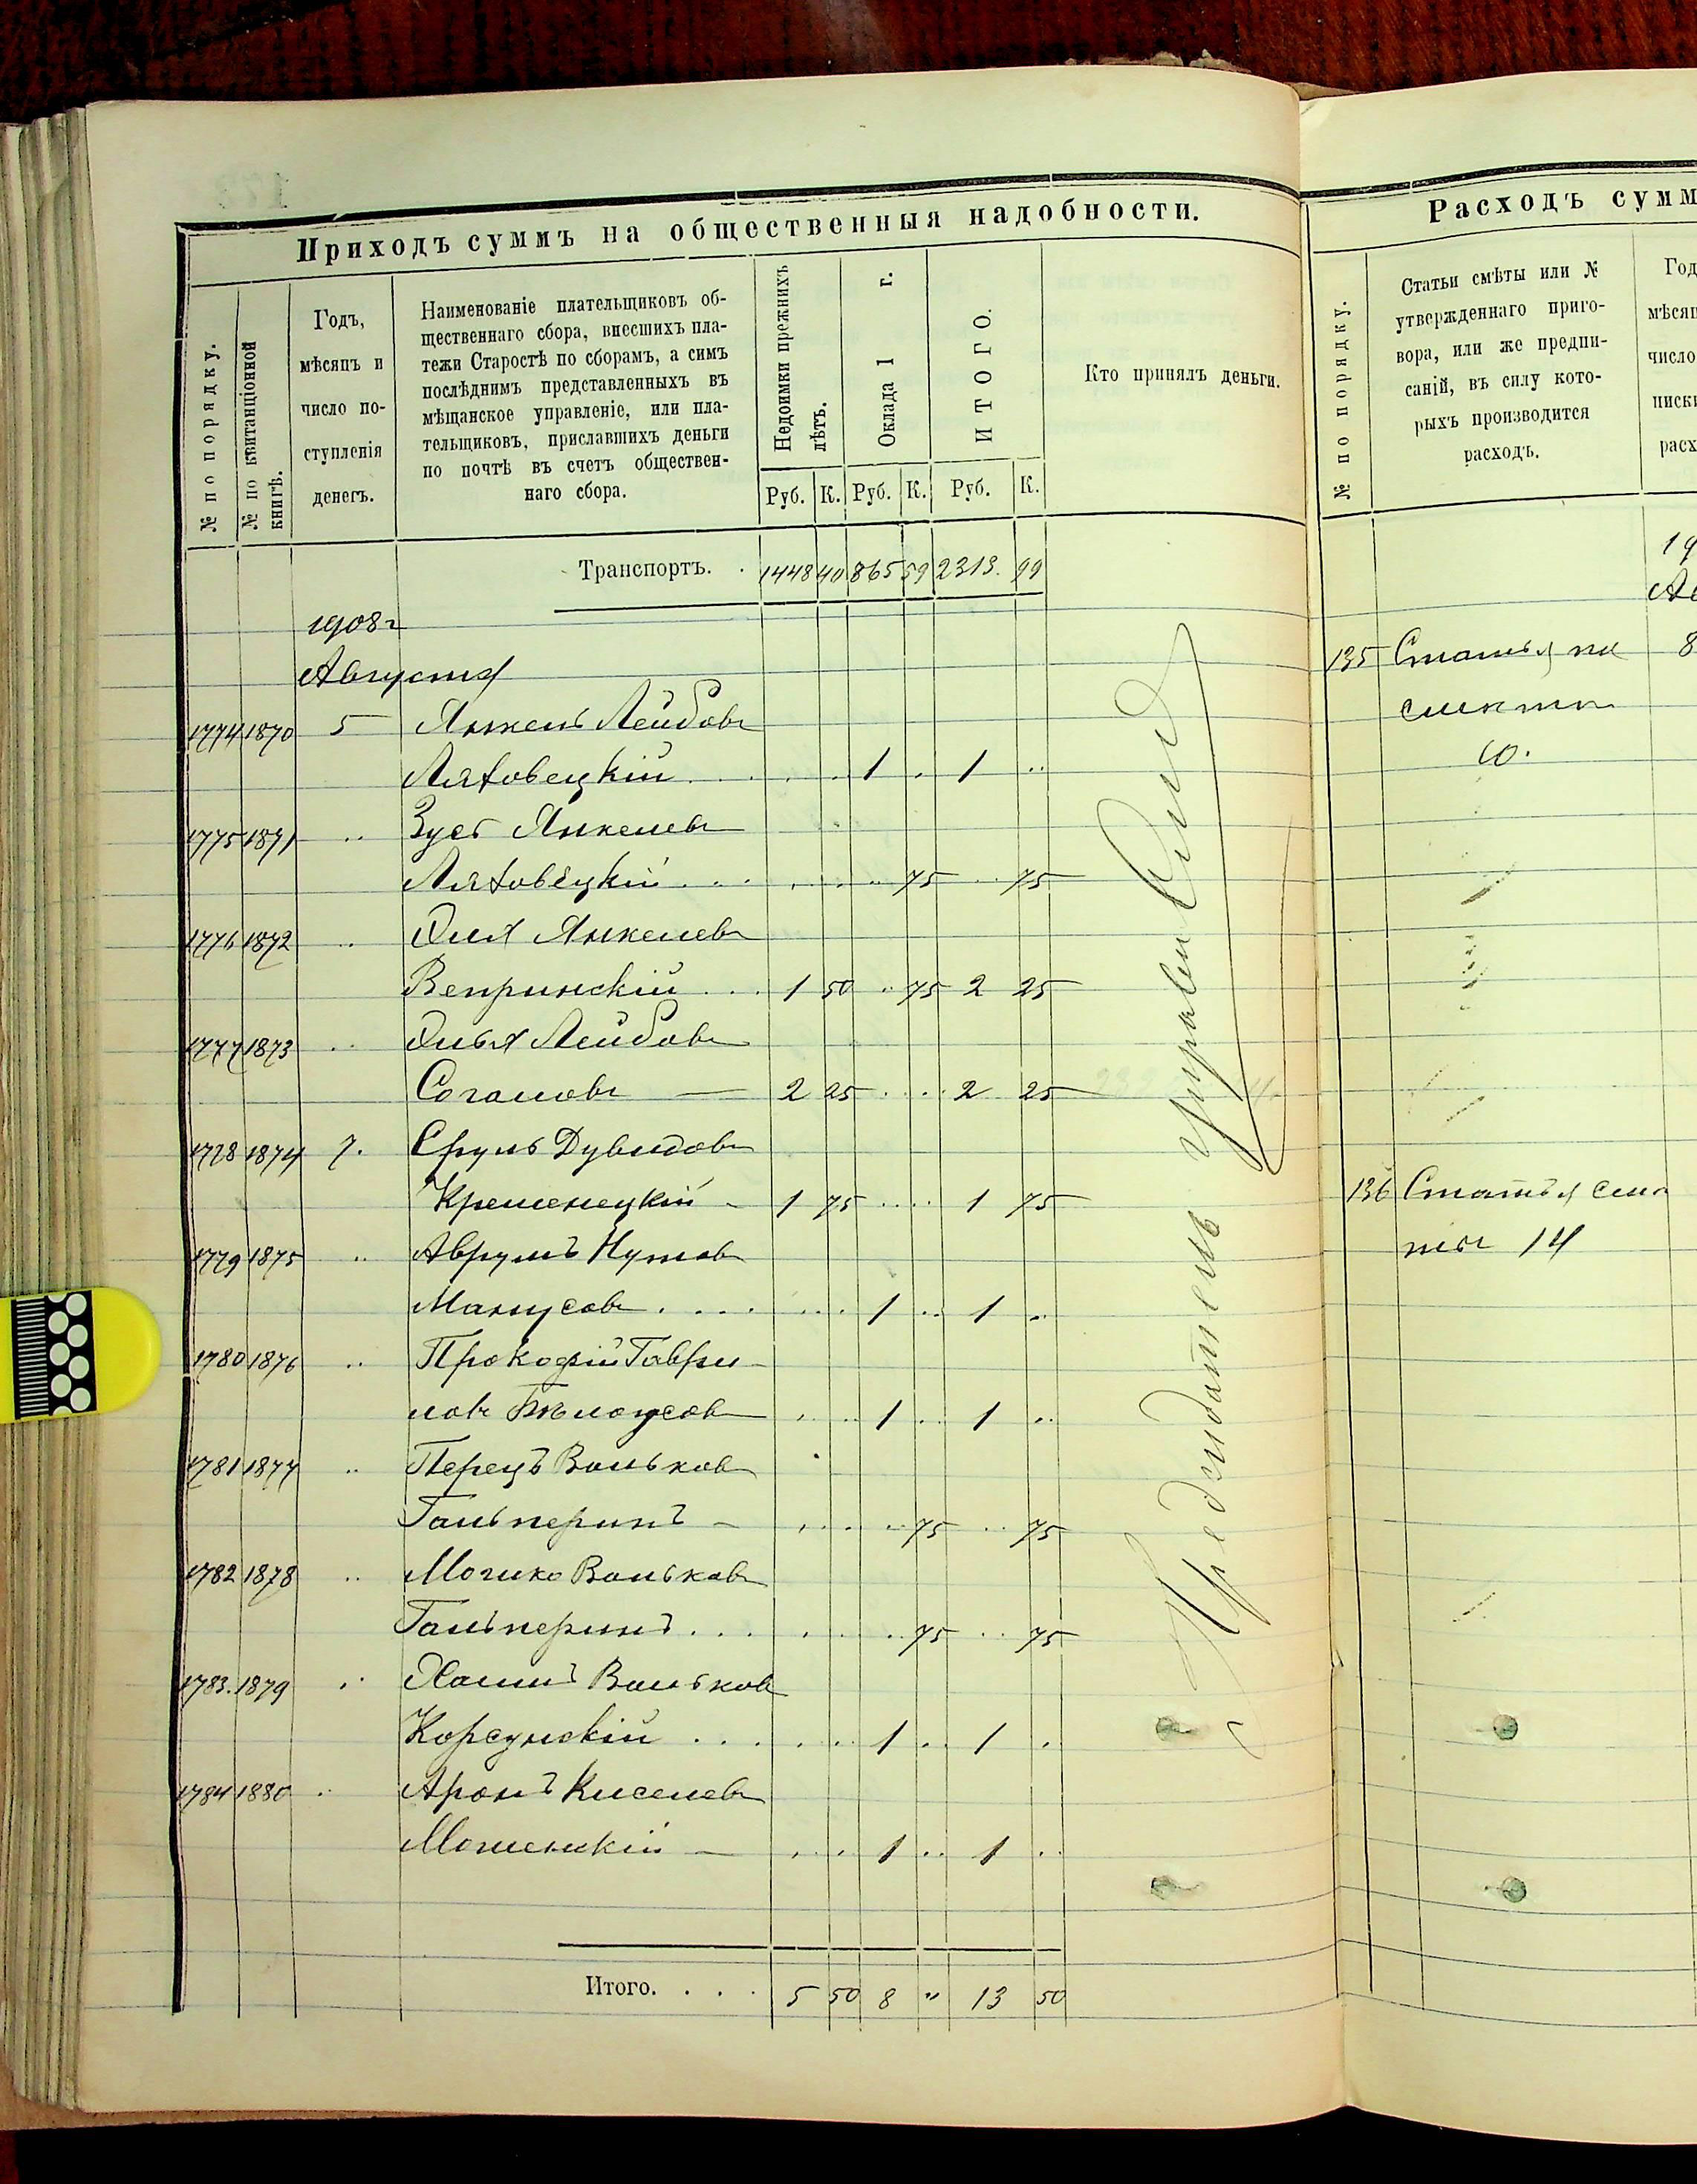 Приходъ суммъ на общественныя надобности.
№ по порядку.
№ по квитанціонной книгѣ.
Годъ,
мѣсяцъ и
число по-
ступленія
денегъ.
Наименованіе плательщиковъ об-
щественнаго сбора, внесшихъ пла-
тежи Старостѣ по сборамъ, а симъ
послѣднимъ представленныхъ въ
мѣщанское управленіе, или пла-
тельщиковъ, приславшихъ деньги
по почтѣ въ счетъ обществен-
наго сбора.
Недоимки прежнихъ
лѣтъ.
Оклада 1 г.
ИТОГО.
Кто принялъ деньги.
Руб. К. Руб. К. Руб. К.
Транспортъ. . 1448 40 865 59 2313. 99
1908 г
Августа
1774 1870 5 Янкель Лейбовъ
Ляховецкій . . . . . . 1 . 1 ..
1775 1871 .. Зусь Янкелевъ
Ляховецкій . . . . . . .. 75 .. 75
1776 1872 .. Эля Янкелевъ
Вепринскій . . . 1 50 .. 75 2 25
1777 1873 .. Элья Лейбовъ
Согаловъ — 2 25 . . . 2 25
1778 1874 7. Сруль Дувидовъ
Кременецкій - 1 75 . . . . 1 75
1779 1875 .. Аврумъ Нутовъ
Манусовъ . . . . . . . 1 .. 1 ..
1780 1876 .. Прокофій Гаври-
ловъ Бѣлоусовъ . . . . 1 .. 1 ..
1781 1877 .. Перецъ Вольковъ
Гальперинъ - . . . .. 75 .. 75
1782 1878 .. Мошко Вольковъ
Гальперинъ . . . . . . . 75 .. 75
1783. 1879 .. Хаимъ Вольковъ
Корсунскій . . . . . . . 1 .. 1 .
1784 1880 .. Аронъ Киселевъ
Мошенскій — . . . 1 .. 1 ..
Итого. . . . 5 50 8 " 13 50
Предсѣдатель управы
Расходъ сумм
№ по порядку.
Статьи смѣты или №
утвержденнаго приго-
вора, или же предпи-
саній, въ силу кото-
рыхъ производится
расходъ.
Год
мѣсяц
число
писки
расх
19
Ав
135 Статья по 8
смѣтѣ
10.
136 Статья смѣ
ты 14